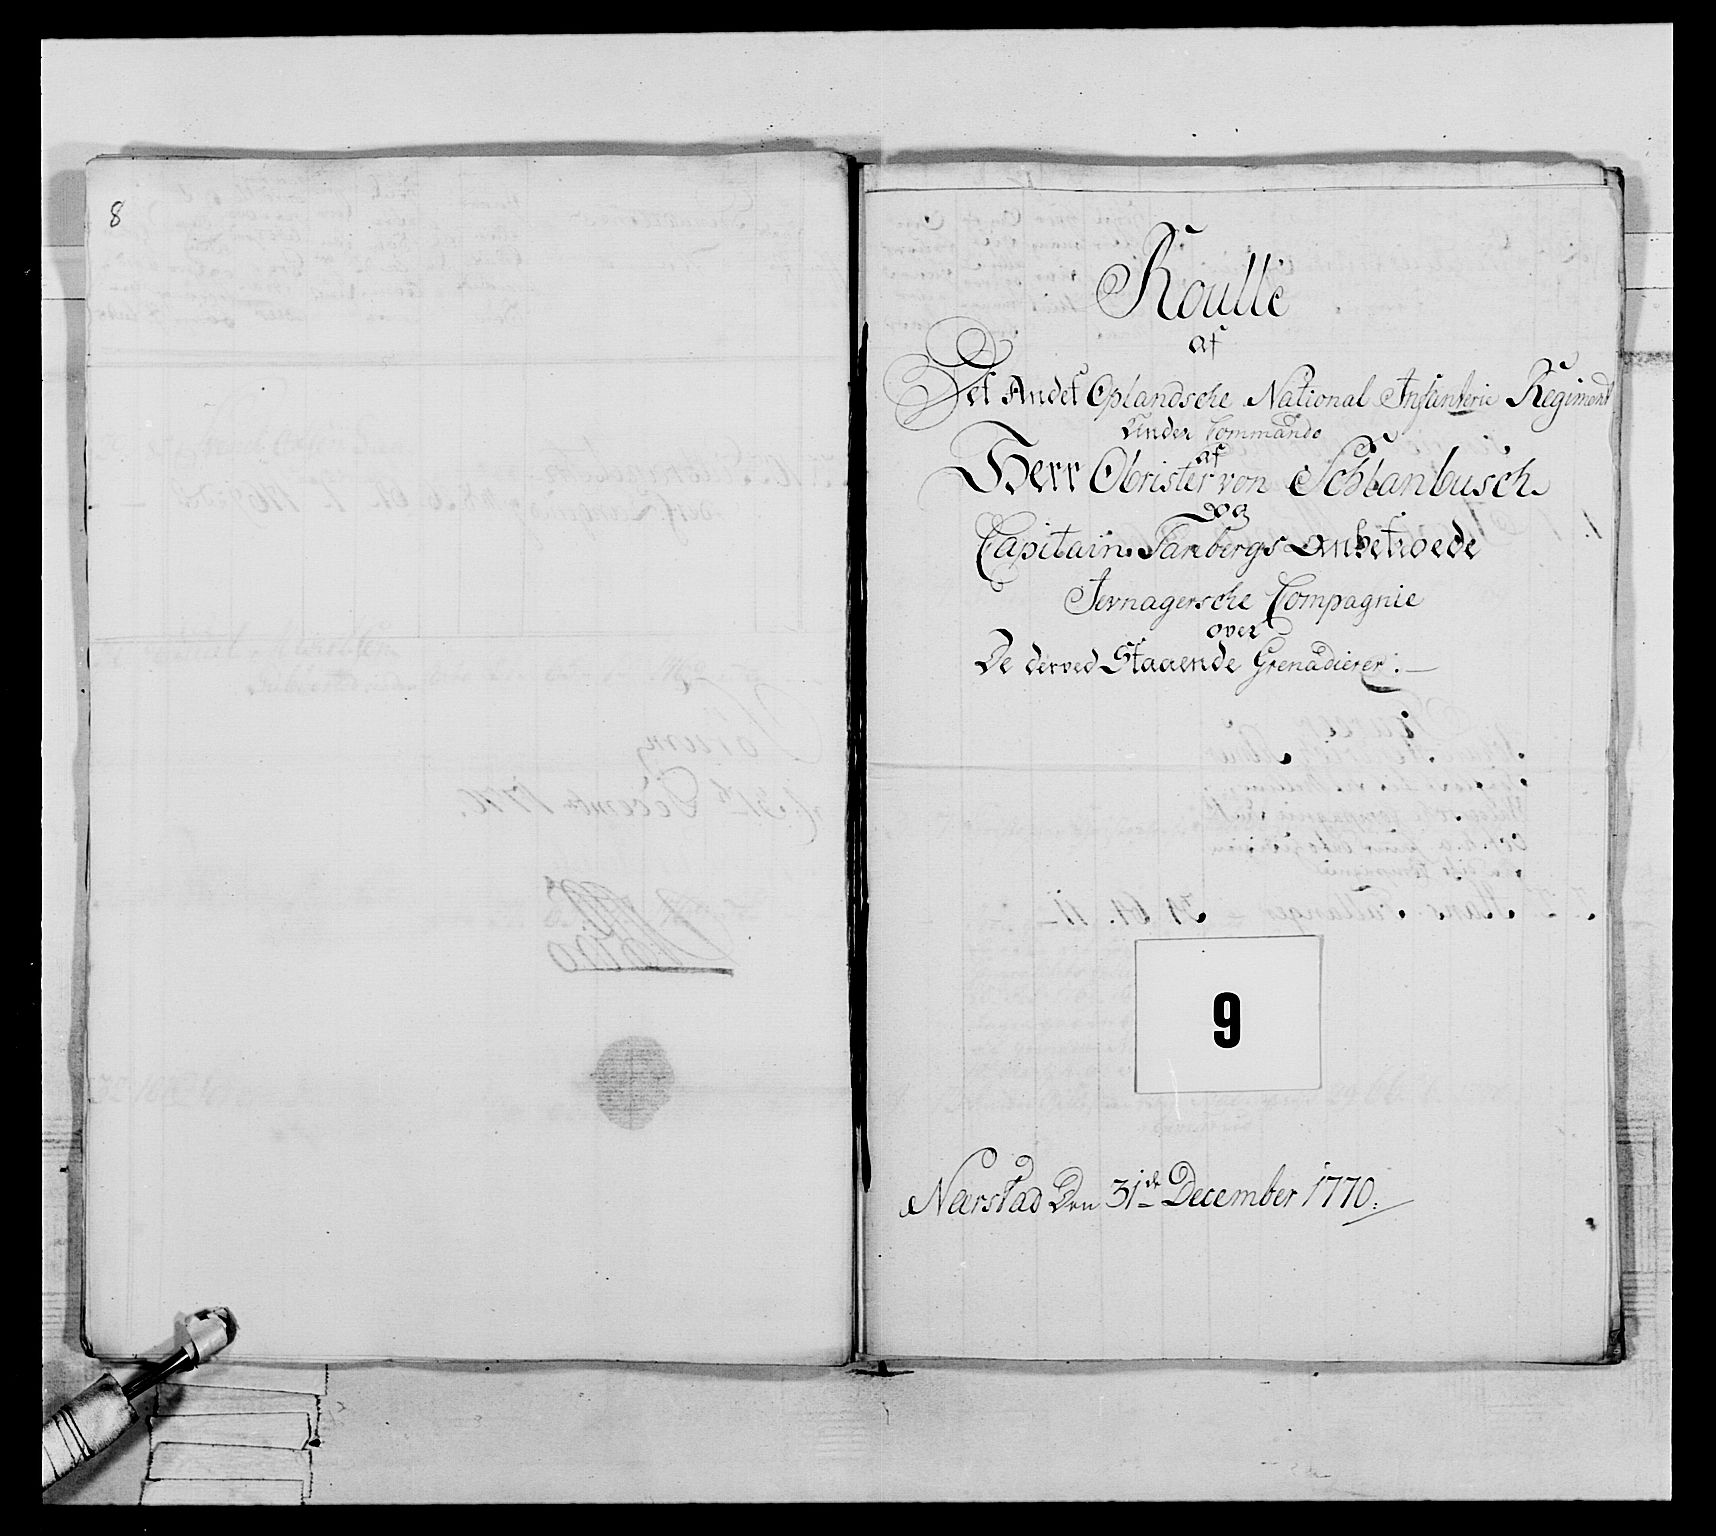 8
Roulle
af
Det Andet Oplandsche National Infanterie Regiment
Under Commando
af
Herr Obrister von Schlanbusch
og
Capitain Fanbergs anbetroede
Jevnagersche Compagnie
over
De derved Staaende Grenadierer:
9
Nærstad Den 31de December 1770.